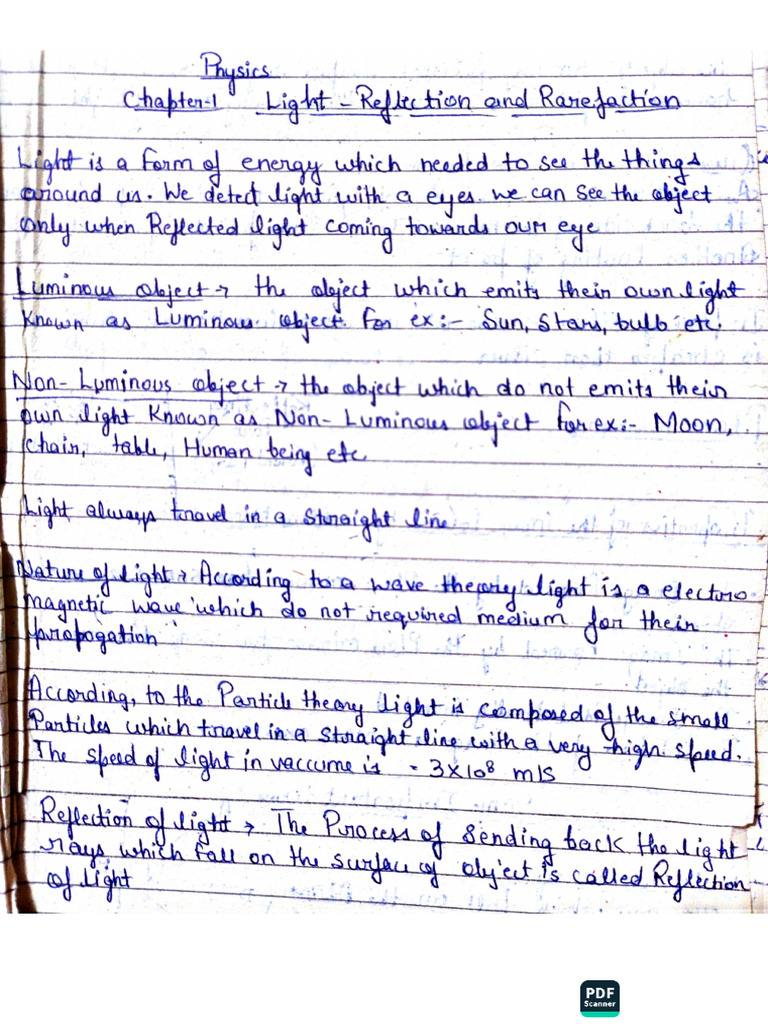 Physics
Chapter-1 Light - Reflection and Rarefaction
Light is a form of energy which needed to see the things
around us. We detect light with a eyes. we can see the object
only when Reflected light coming towards our eye
Luminous object → the object which emits their own light
Known as Luminous object. for ex:- Sun, Stars, bulb etc.
Non-Luminous object → the object which do not emits their
own light Known as Non-Luminous object for ex:- Moon,
chair, table, Human being etc
Light always travel in a straight line
Nature of light → According to a wave theory light is a electro
magnetic wave which do not required medium for their
propogation
According, to the Particle theory light is composed of the small
Particles which travel in a straight line with a very high speed.
The speed of light in vaccume is - 3x10⁸ m/s
Reflection of light → The Process of sending back the light
rays which fall on the surface of object is called Reflection
of light
PDF
Scanner